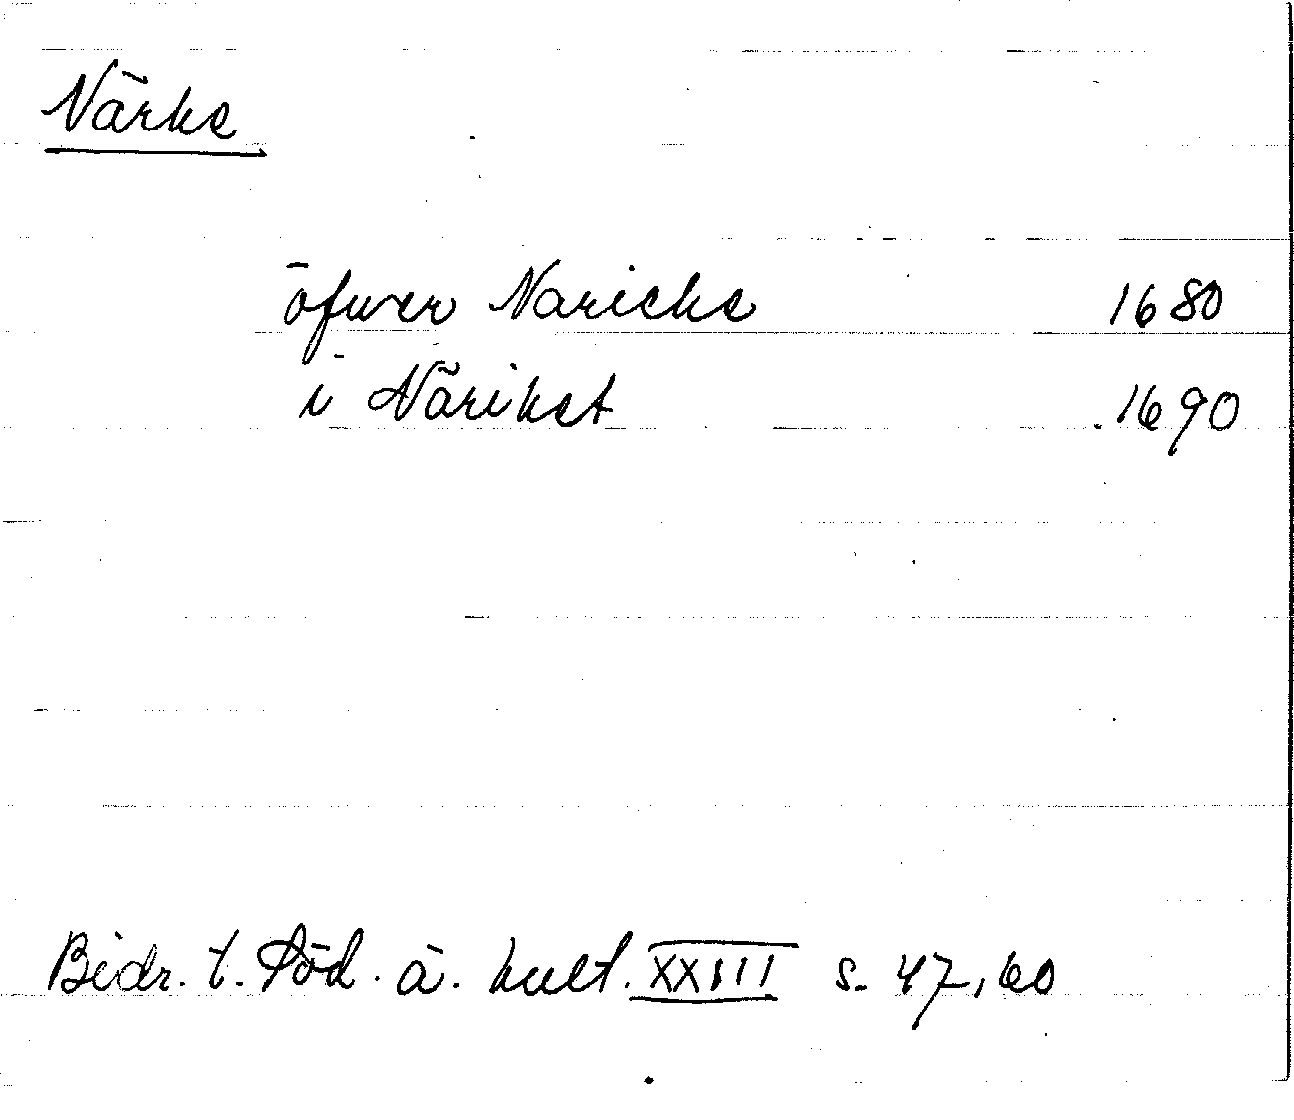 Närke
öfwer Naricke 1680
i Näriket 1690
Bidr. t. Söd. ä. kult. XXIII s. 47, 60